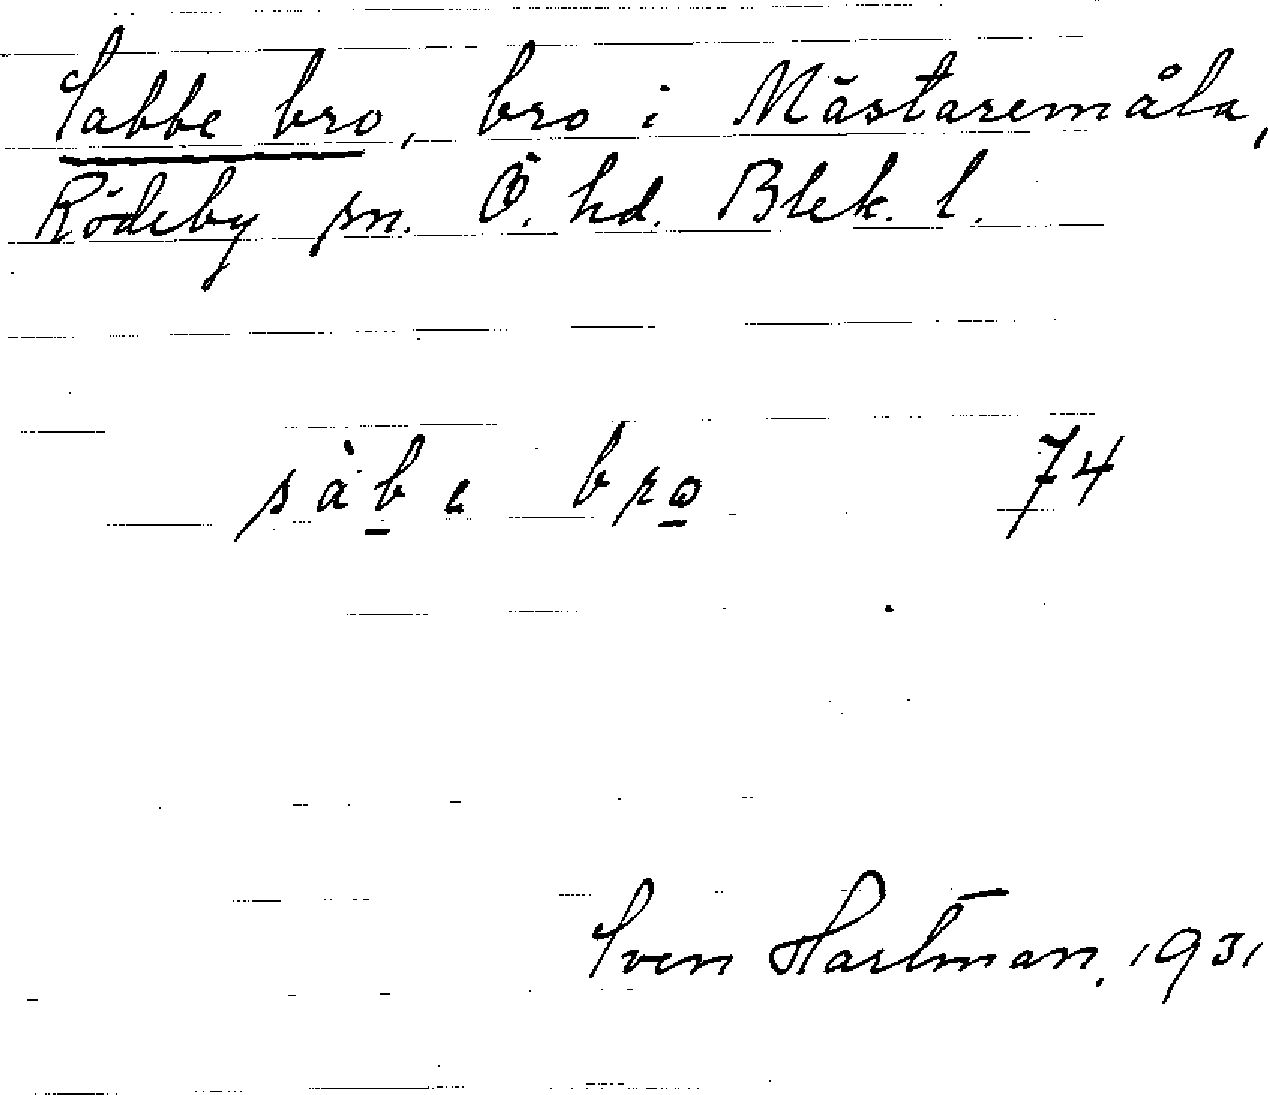 Sabbe bro, bro i Mästaremåla,
Rödeby sn. Ö. hd. Blek. l.
sàb̲e bro̲ 74
Sven Hartman. 1931